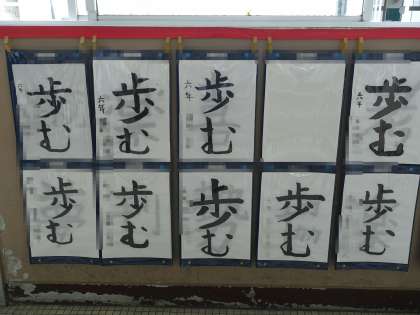 歩む
六年
歩む
六年
歩む
六年
歩む
六年
歩む
歩む
歩む
歩む
歩む